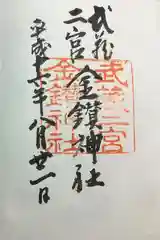 武蔵
二宮
金鑚神社
平成十七年八月廿一日
武蔵二宮
金鑚神社